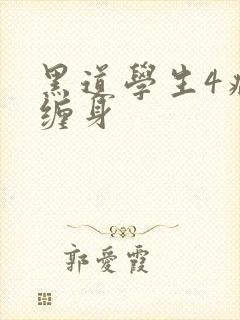 黑道學生4
缠身
郭愛霞